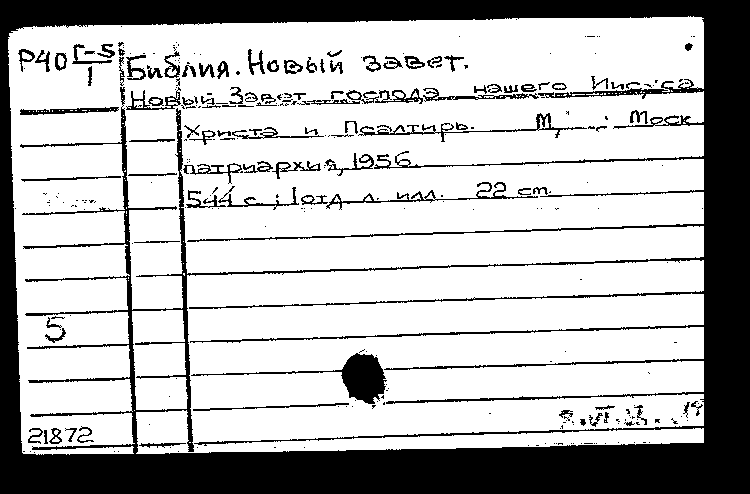 Р40 Г-5/1 Библия. Новый завет.
Новый Завет господа нашего Иисуса
Христа и Псалтирь. М, : Моск
патриархия, 1956.
544 с.; 1 отд. л. илл. 22 cm.
5
21872